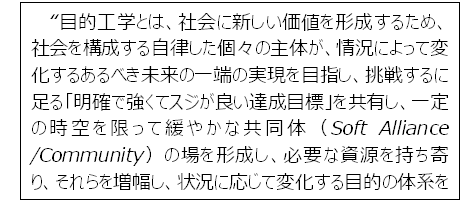 “目的工学とは、社会に新しい価値を形成するため、
社会を構成する自律した個々の主体が、情況によって変
化するあるべき未来の一端の実現を目指し、挑戦するに
足る「明確で強くてスジが良い達成目標」を共有し、一定
の時空を限って緩やかな共同体（Soft Alliance
/Community）の場を形成し、必要な資源を持ち寄
り、それらを増幅し、状況に応じて変化する目的の体系を